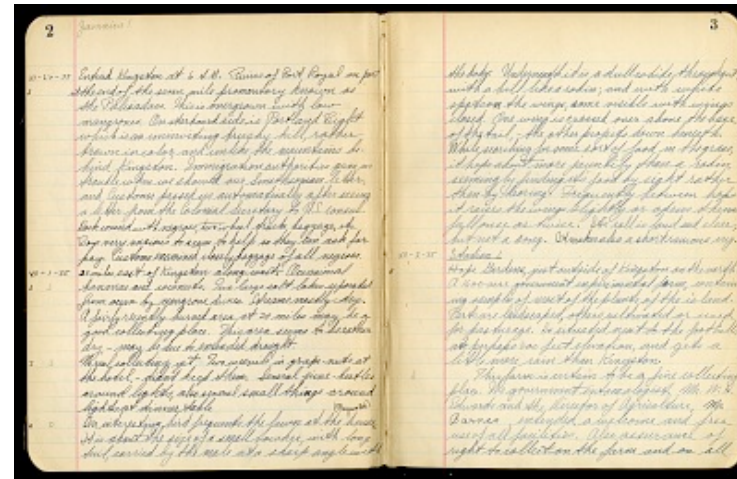 2
Jamaica!
Entered Kingston at 6 A.M. Ruins of Port Royal on port
at the end of the seven mile promontory known as
the Palisadoes. This is overgrown with low
mangroves. On starboard side is Portland Bight
which is an uninviting brushy hill, rather
brown in color and unlike the mountains be-
hind Kingston. Immigration authorities gave no
trouble when we showed our Smithsonian letter,
and Customs passed us automatically after seeing
a letter from the Colonial Secretary to U.S. consul.
pay. Customs examined closely baggage of all negroes.
miles east of Kingston along coast. Occasional
bananas and coconuts. Two large salt lakes separated
from ocean by mangrove. Streams mostly dry.
A fairly recently burned area at 20 miles may be a
good collecting place. This area seems to be rather
dry - may be due to extended drought.
collecting yet. Two in grape-nuts at
the hotel - didn't keep them. Several June-beetles
around lights, also several small things around
lights at dinner table.
An interesting bird frequents the lawn at the house.
It is about the size of a small, with long
tail, carried by the male at a sharp angle with
3
the body. Underneath it is a dull white, throughout
with a bill like a robin; and with white
spots on the wings, some visible with wings
closed. One wing is crossed over above the base
of the tail, the other props it down beneath.
While searching for some sort of food in the grass,
it hops about more jerkily than a robin
seeming to find its food by sight rather
than by hearing. Frequently between hops
it raises the wings slightly or opens them
fully once or twice. Its call is loud and clear,
but not a song. makes a short running
Hope Gardens, just outside of Kingston on the north
A 200 acre government experimental farm, containing
samples of most of the plants of the island.
Parts are landscaped, others cultivated or used
for pasturage. Is situated next to the foothills
at perhaps 700 feet elevation, and gets a
little more rain than Kingston.
This farm is certain to be a fine collecting
place. The government entomologist, Mr. W. H.
Edwards and the Director of Agriculture, Mr.
Barnes extended a welcome and free
use of all facilities. Also assurance of
right to collect on the farm and on all